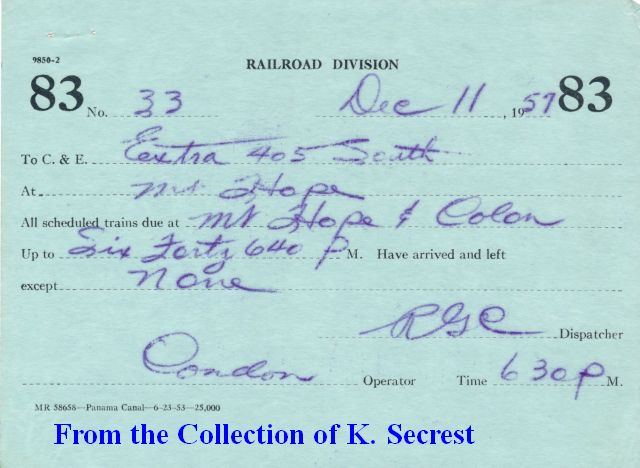 9850-2
RAILROAD DIVISION
83 No. 33 Dec 11, 1957 83
To C. & E. Eextra 405 South
At Mt Hope
All scheduled trains due at Mt Hope & Colon
Up to Six Forty 640 P M. Have arrived and left
except None
RGC Dispatcher
Condon Operator Time 630 P M.
MR 58658—Panama Canal—6-23-53—25,000
From the Collection of K. Secrest